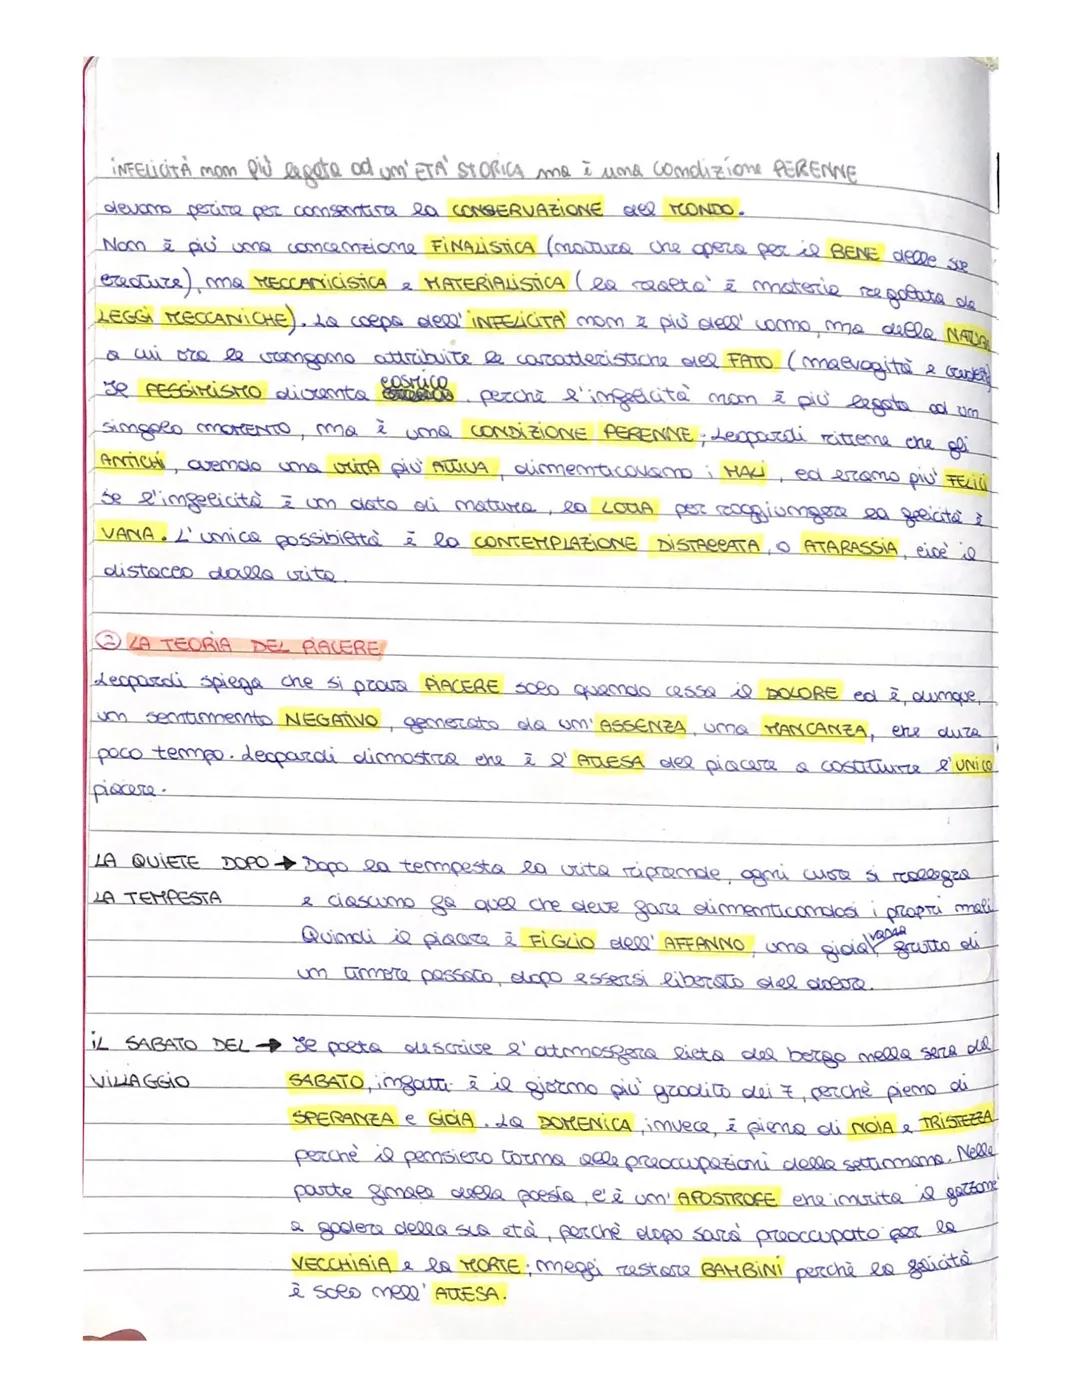 INFELICITÀ non più legata ad un' ETÀ STORICA ma è una condizione PERENNE
devono perire per consentire la CONSERVAZIONE del MONDO.
Non è più una concenzione FINALISTICA (natura che opera per il BENE delle sue
creature), ma MECCANICISTICA e MATERIALISTICA (la realtà è materia regolata da
LEGGI MECCANICHE). La colpa dell' INFELICITÀ non è più dell' uomo, ma della NATURA
a cui ora le vengono attribuite le caratteristiche del FATO (malvagità e crudeltà)
Il PESSIMISMO diventa cosmico perchè l'infelicità non è più legata ad un
singolo MOMENTO, ma è una CONDIZIONE PERENNE; Leopardi ritiene che gli
ANTICHI, avendo una VITA più ATTIVA, dimenticavano i MALI, ed erano più FELICI
Se l'infelicità è un dato di natura, la LOTTA per raggiungere la felicità è
VANA. L'unica possibiltà è la CONTEMPLAZIONE DISTACCATA, O ATARASSIA, cioè il
distacco dalla vita.
② LA TEORIA DEL PIACERE
Leopardi spiega che si prova PIACERE solo quando cessa il DOLORE ed è, dunque,
un sentimento NEGATIVO, generato da un' ASSENZA, una MANCANZA, che dura
poco tempo. Leopardi dimostra che è l' ATTESA del piacere a costituire l' UNICO
piacere.
LA QUIETE DOPO → Dopo la tempesta la vita riprende, ogni cuore si rallegra
LA TEMPESTA e ciascuno fa quel che deve fare dimenticandosi i propri mali
Quindi il piacere è FIGLIO dell' AFFANNO, una gioia vana frutto di
un timore passato, dopo essersi liberato dal dolore.
IL SABATO DEL → Il poeta descrive l'atmosfera lieta del borgo nella sera del
VILLAGGIO SABATO, infatti è il giorno più gradito dei 7, perchè pieno di
SPERANZA e GIOIA. La DOMENICA, invece, è piena di NOIA e TRISTEZZA
perchè il pensiero torna alle preoccupazioni della settimana. Nella
parte finale della poesia, c'è un' APOSTROFE che invita il garzone
a godere della sua età, perchè dopo sarà preoccupato per la
VECCHIAIA e la MORTE; meglio restare BAMBINI perchè la felicità
è solo nell' ATTESA.